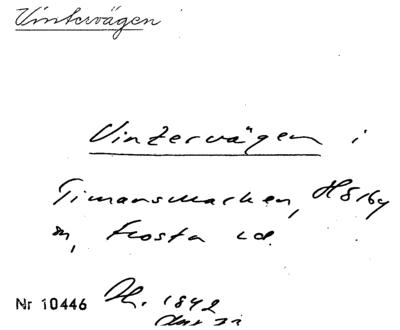 Vintervägen
Vintervägen i
Timansmarken, HSlby
sn, Frosta hd.
Nr 10446 Dh. 1842